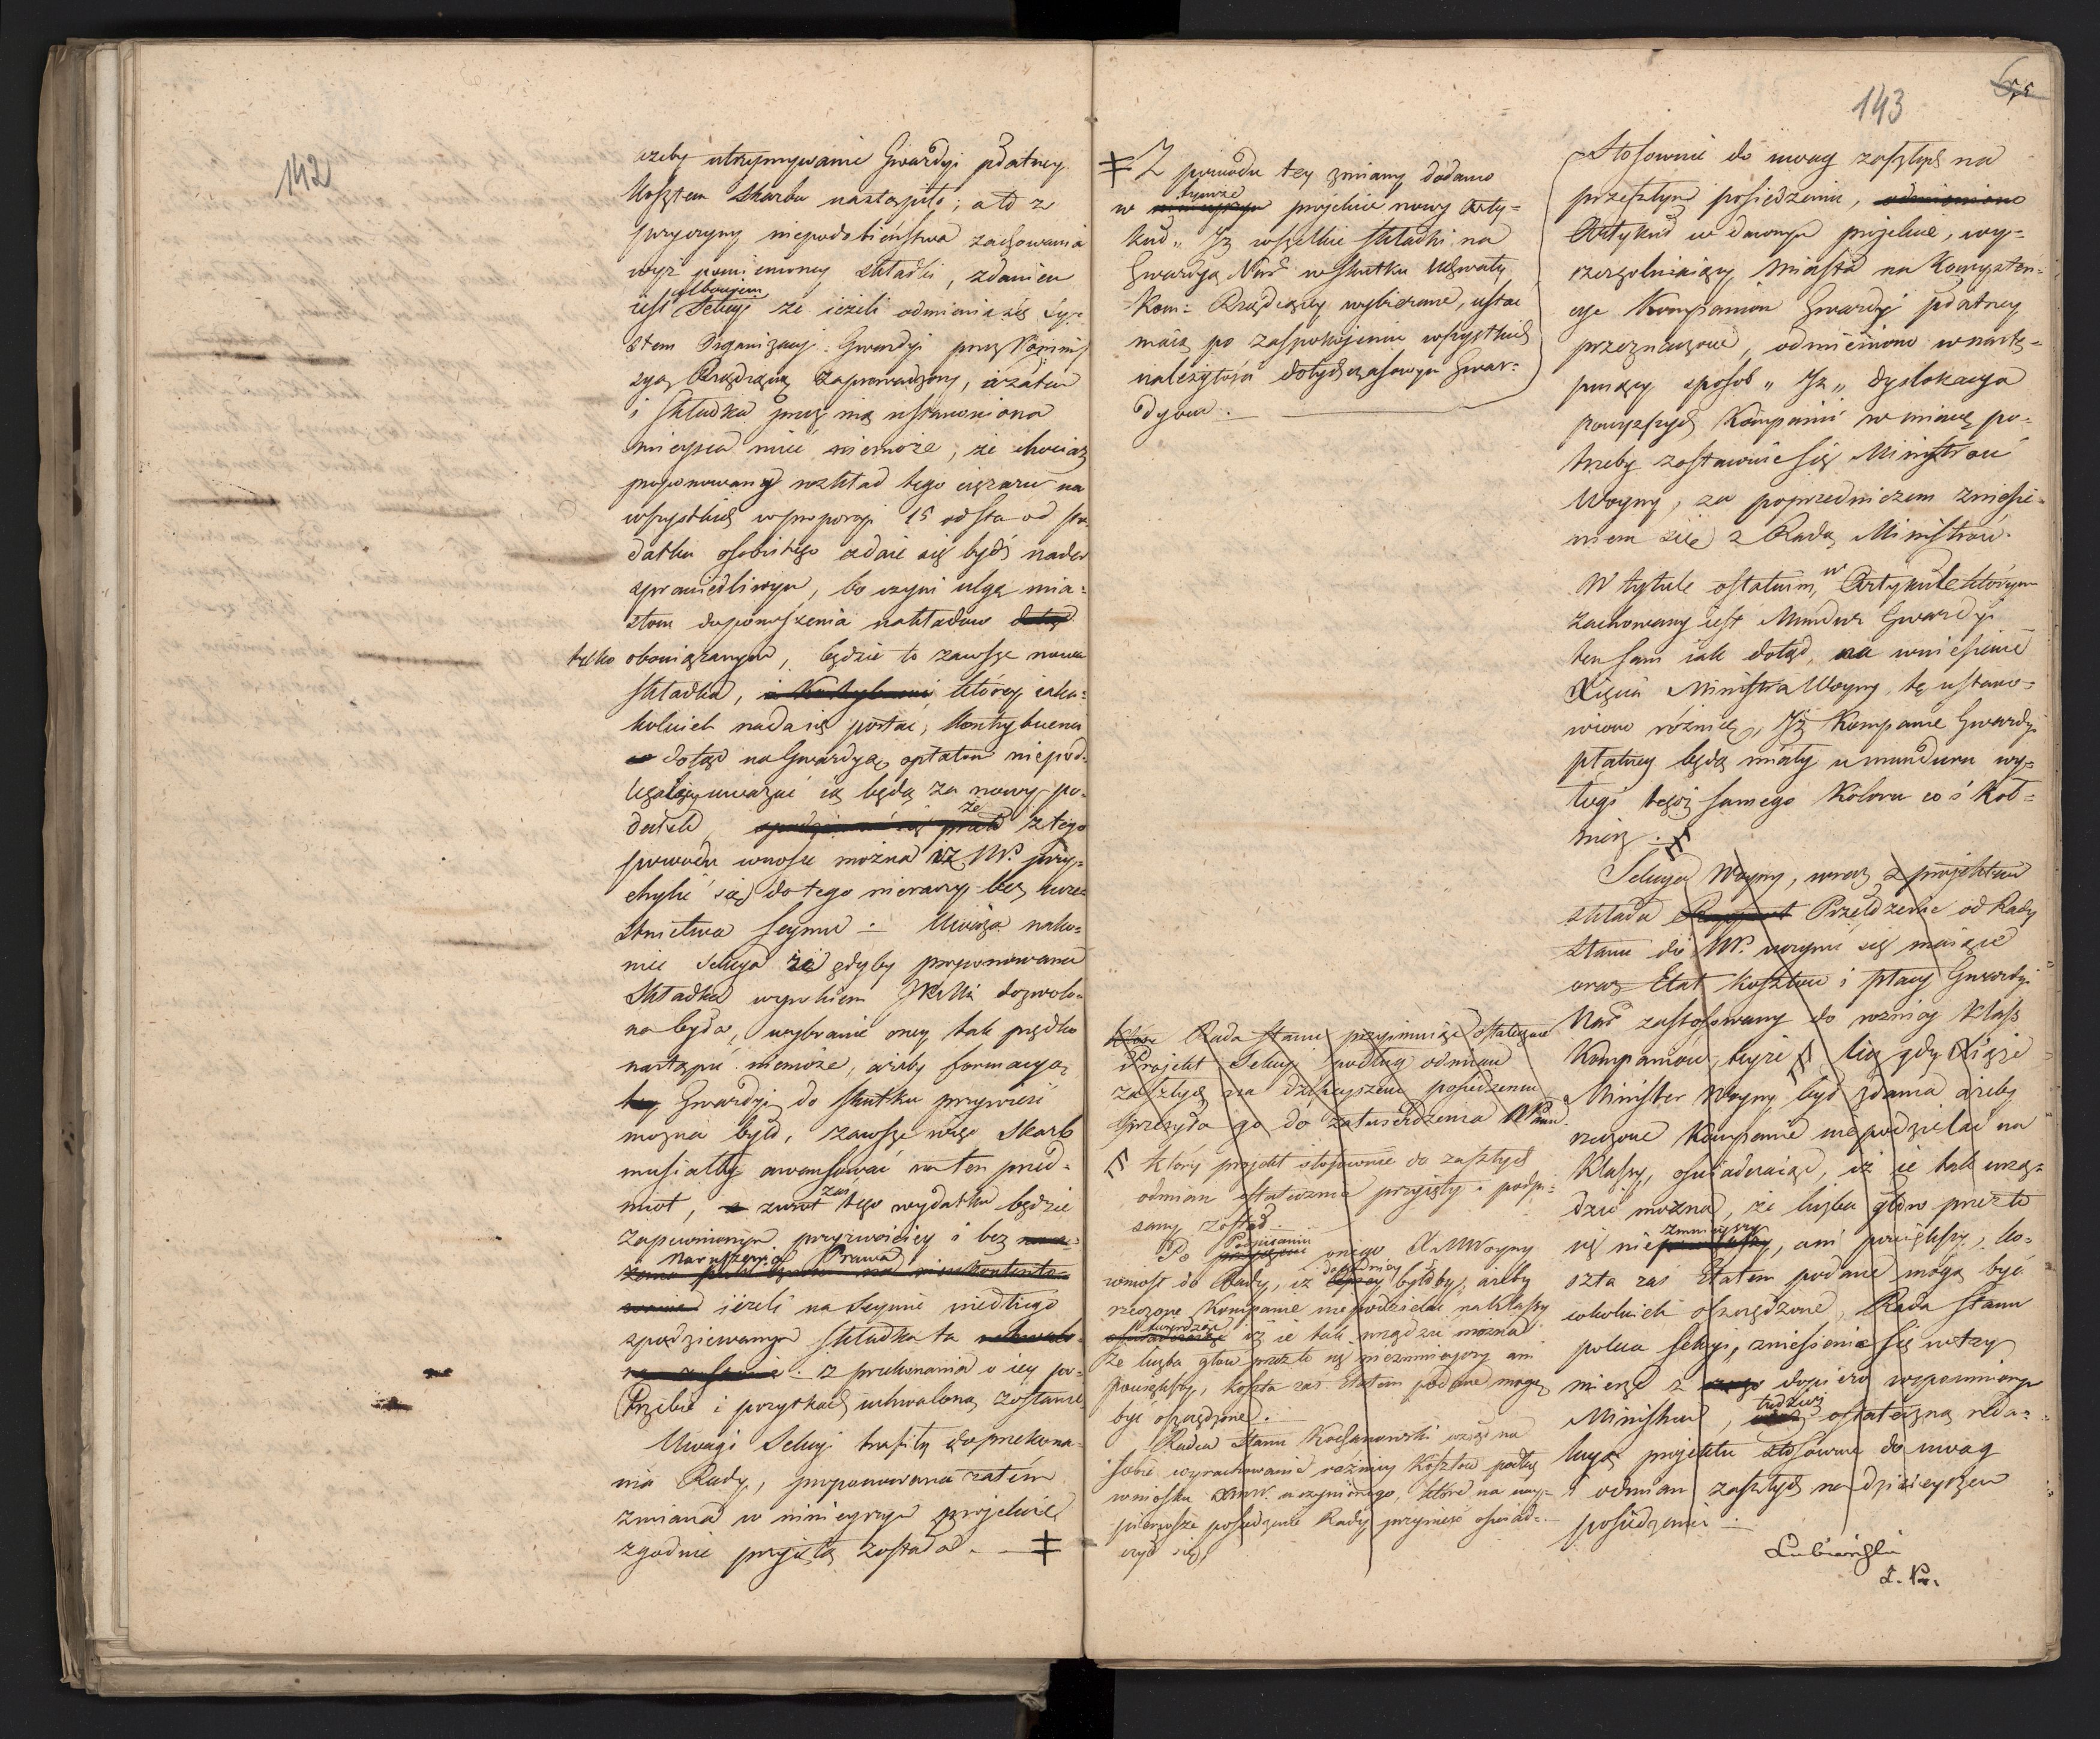 142
ażeby utrzymywanie Gwardyi płatney
kosztem Skarbu nastąpiło; a to z
przyczyny niepodobieństwa zachowania
wyż pomienioney składki, zdaniem
jest albowiem Sekcyi że ieżeli odmienia się Sy=
stem Organizacyi Gwardyi przez Kommis
syą Rządzącą zaprowadzony, a zatem
i składka przez nią ustanowiona
mieysca mieć niemoże, że chociaż
proponowany rozkład tego ciężaru na
wszystkich w proporcyi 15 od sta od po=
datku osobistego zdaie się bydź nader
sprawiedliwym, bo czyni ulgę mia=
stom do ponoszenia nakładów dotąd
tylko obowiązanym, będzie to zawsze nowa
składka, którey iaka=
kolwiek nada się postać, kontrybuenci
dotąd na Gwardyą opłatom niepod=
legaiący uważać ią będą za nowy po=
datek, że z tego
powodu wnosić można iż NP. przy=
chylić się do tego nieraczy bez ucze=
stnictwa Seymu. Uważa nako=
niec Sekcya że gdyby proponowana
Składka wyrokiem JKMci dozwolo=
na była, wybranie oney tak prędko
nastąpić niemoże, ażeby formacyą
tey Gwardyi do skutku przywieść
można było, zawsze więc Skarb
musiałby awansować na ten przed=
miot, a zwrot zaś tego wydatku będzie
zapewnionym przyzwoiciey i bez
naruszenia Prawa
ieżeli na Seymie niedługo
spodziewanym składka ta
z przekonania o iey po=
trzebie i pożytkach uchwaloną zostanie
Uwagi Sekcyi trafiły do przekona=
nia Rady, proponowana zatem
zmiana w ninieyszym projekcie
zgodnie przyiętą została. ‡
143
‡ Z powodu tey zmiany dodano
w tymże projekcie nowy Arty=
kuł „Iż wszelkie składki na
Gwardyą Nar w skutku Uchwały
Kom: Rządzącey wybierane, ustać
maią po zaspokoieniu wszystkich
należytości dotychczasowym Gwar=
dyom.
które Rada Stanu przyimuiąc ostatecznie
Projekt Sekcyi podług odmian
zaszłych na dzisieyszem posiedzeniu
przesyła go do zatwierdzenia NPanu
który projekt stosownie do zaszłych
odmian ostatecznie przyięty i podpi=
sany został.
Po Podpisaniu onego X. M Woyny
wniosł do Rady, iż dogodniey byłoby, ażeby
rzeczone Kompanie niepodzielać na klassy
twierdząc iż ie tak urządzić można
że liczba głow przez to się niezmnieyszy ani
powiększy, koszta zaś Etatem podane mogą
być oszczędzone.
Radca Stanu Kochanowski wziął na
siebie wyrachowanie różnicy kosztów podług
wniosku XMW. uczynionego, które na nay=
pierwsze posiedzenie Rady przynieść oświad=
czył się.
Stosownie do uwag zaszłych na
przeszłym posiedzeniu, odmieniono
Artykuł w dawnym projekcie, wy=
szczególniaiący Miasta na Konsysten=
cye Kompaniom Gwardyi płatney
przeznaczone, odmieniono w nastę=
puiący sposob „Iż „dyslokacya
powyższych Kompanii w miarę po=
trzeby zostawuie się Ministrowi
Woyny, za poprzedniczem zniesie=
niem się z Radą Ministrów.
W tytule ostatnim, w Artykule którym
zachowany iest Mundur Gwardyi
ten sam iak dotąd, na wniesienie
Xięcia Ministra Woyny, tę ustano=
wiono różnicę, Iż Kompanie Gwardyi
płatney będą miały u munduru wy=
łogi tegoż samego koloru co i koł=
nierz.
Sekcya Woyny, wraz z projektem
składa Raport Przełożenie od Rady
Stanu do NP. uczynić się maiące
oraz Etat kosztów i płacy Gwardyi
Nar zastosowany do różnicy klass
Kompaniow teyże, lecz gdy Xiąże
Minister Woyny był zdania ażeby
rzeczone Kompanie niepodzielać na
klassy, oświadczaiąc, iż ie tak urzą=
dzić można, że liczba głów przez to
się nie zmnieyszy, ani powiększy, ko=
szta zaś Etatem podane mogą być
cokolwiek oszczędzone, Rada Stanu
poleca Sekcyi, zniesienie się w tey
mierze z dopiero wspomnionym
Ministrem, tudzież ostateczną reda=
kcyą projektu stosownie do uwag
i odmian zaszłych na dzisieyszem
posiedzeniu.
Lubieński